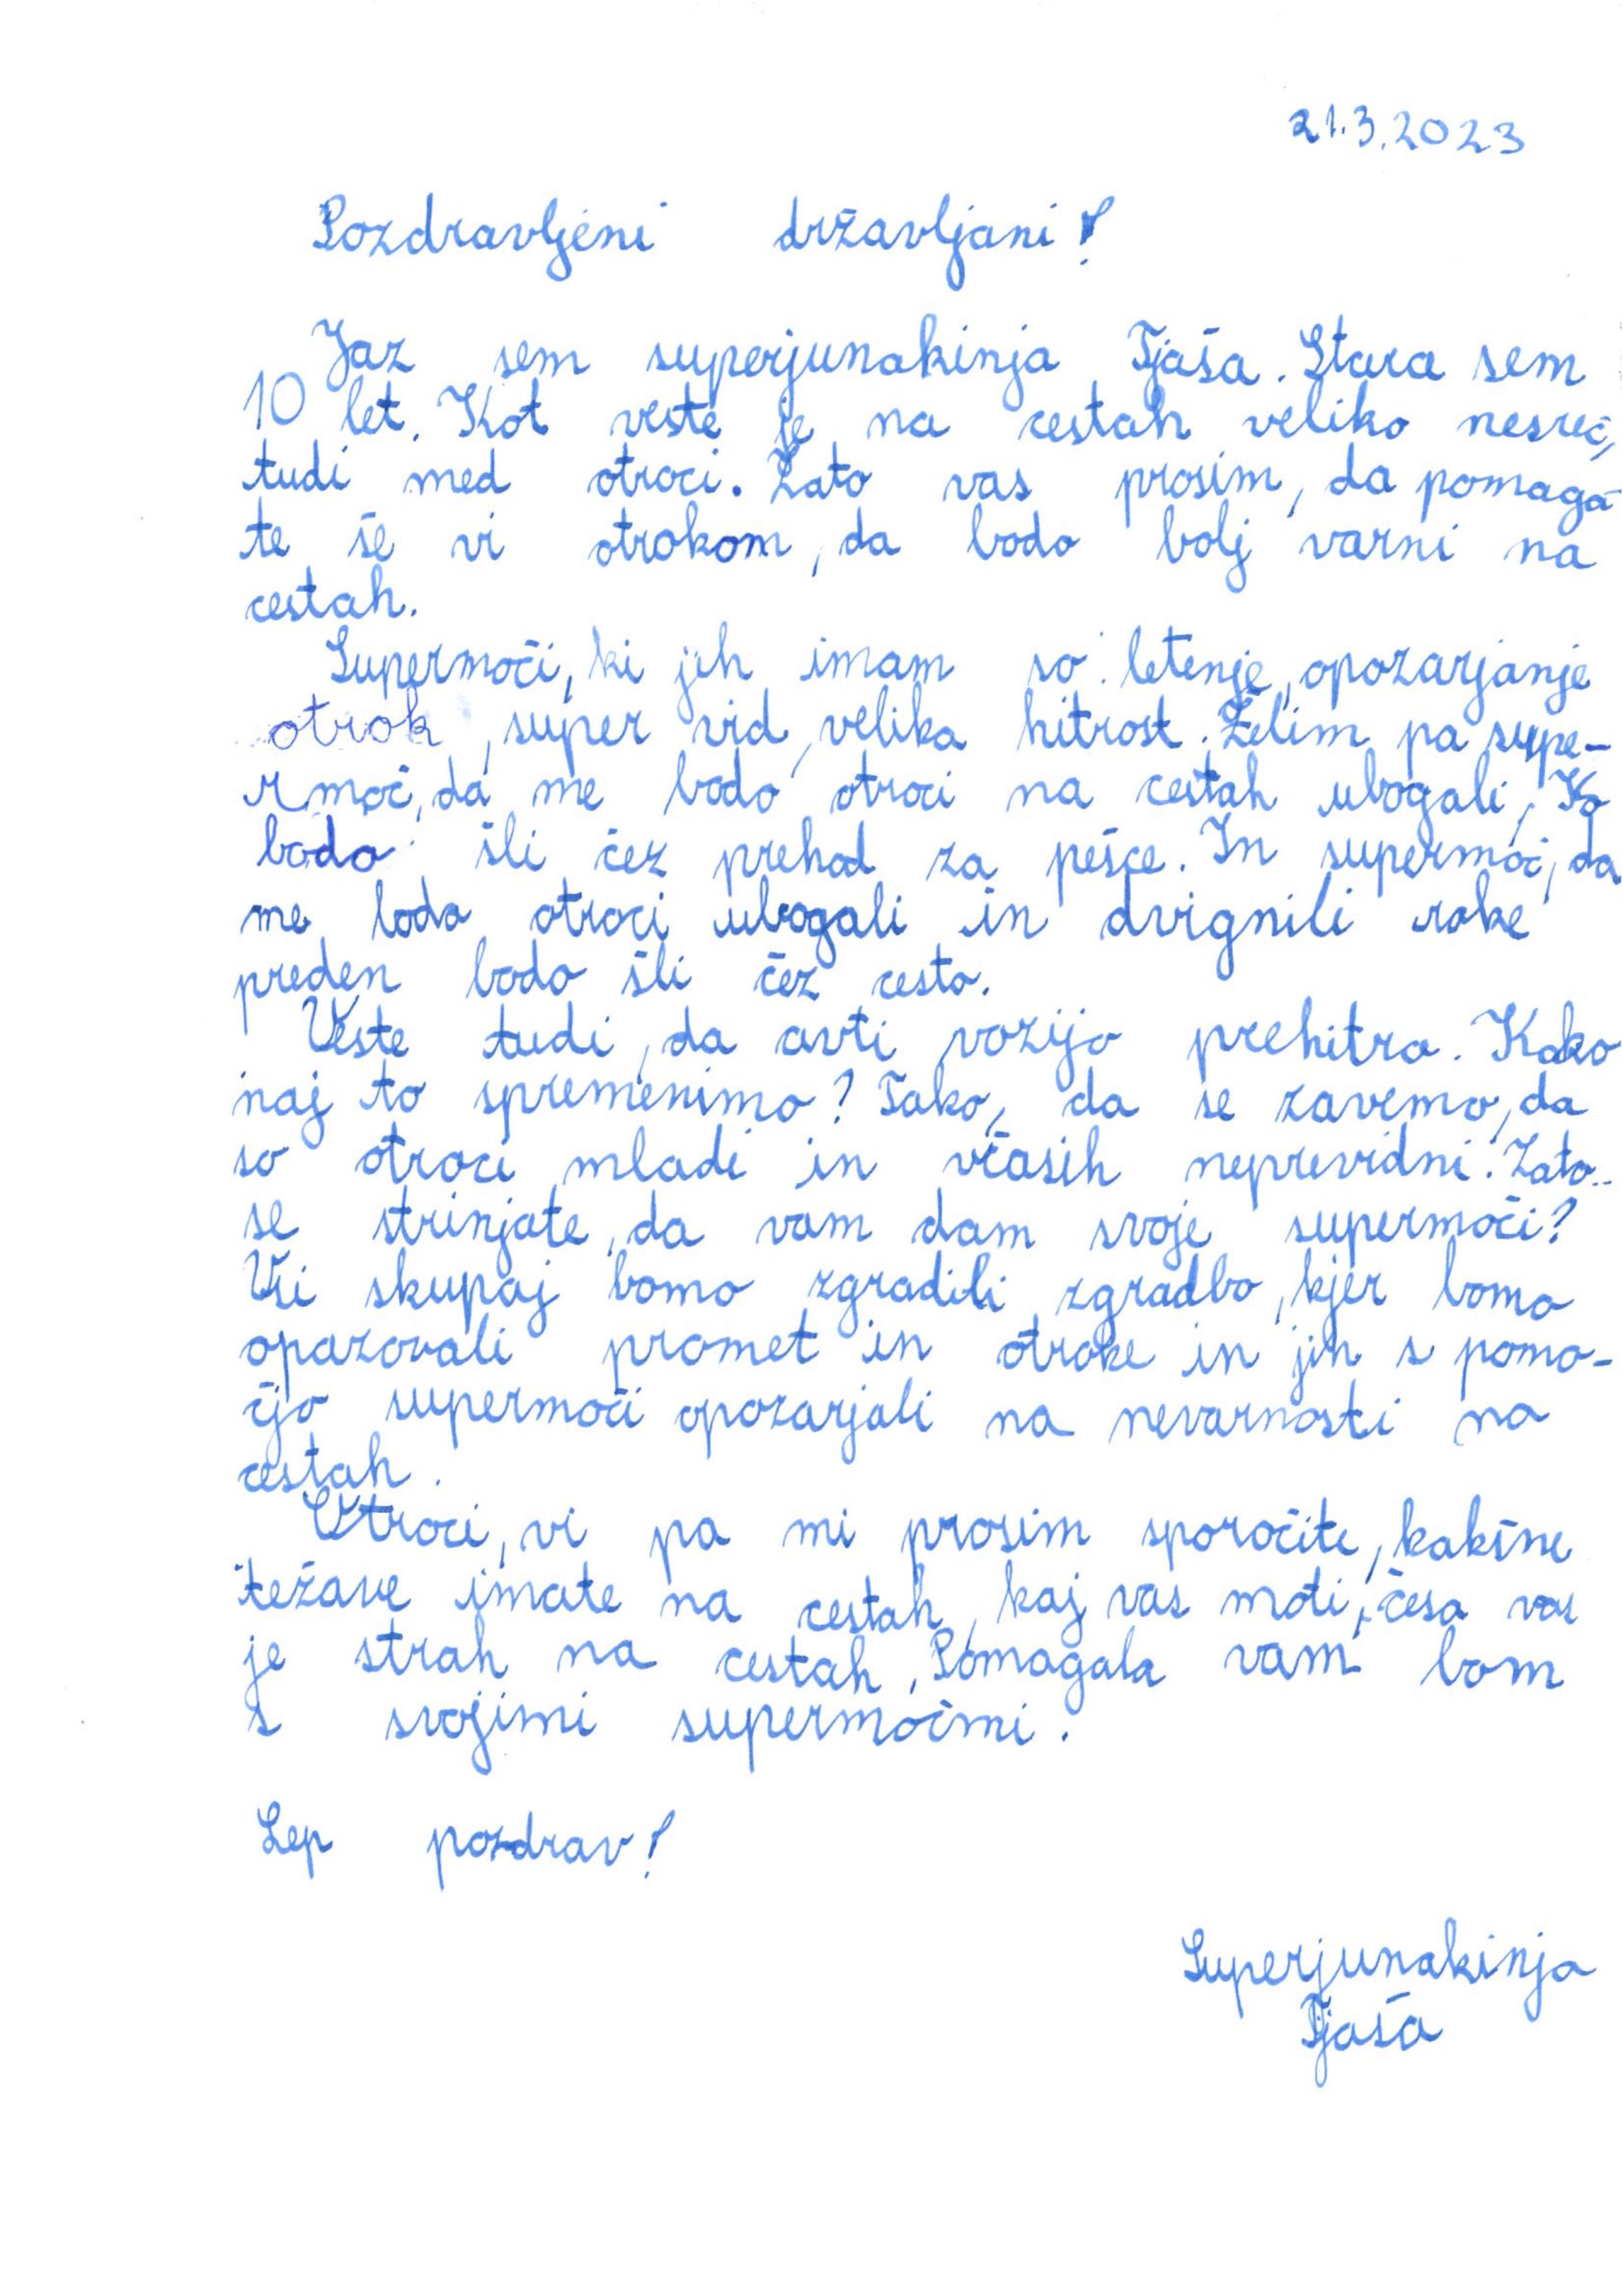 21.3.2023
Pozdravljeni državljani!
Jaz sem superjunakinja Tjaša. Stara sem
10 let. Kot veste je na cestah veliko nesreč,
tudi med otroci. Zato vas prosim, da pomaga-
te še vi otrokom, da bodo bolj varni na
cestah.
Supermoči, ki jih imam so letenje, opozarjanje
otrok, super vid, velika hitrost. Želim pa supe-
rmoč, da me bodo otroci na cestah ubogali, Ko
bodo šli čez prehod za pešce. In supermoč, da
me bodo otroci ubogali in dvignili roke
preden bodo šli čez cesto.
Veste tudi, da avti vozijo prehitro. Kako
naj to spremenimo? Tako, da se zavemo, da
so otroci mladi in včasih neprevidni. Zato..
se strinjate, da vam dam svoje supermoči?
Vsi skupaj bomo zgradili zgradbo, kjer bomo
opazovali promet in otroke in jih s pomo-
čjo supermoči opozarjali na nevarnosti na
cestah.
Otroci, vi pa mi prosim sporočite, kakšne
težave imate na cestah, kaj vas moti, česa vas
je strah na cestah. Pomagala vam bom
s svojimi supermočmi.
Lep pozdrav!
Superjunakinja
Tjaša